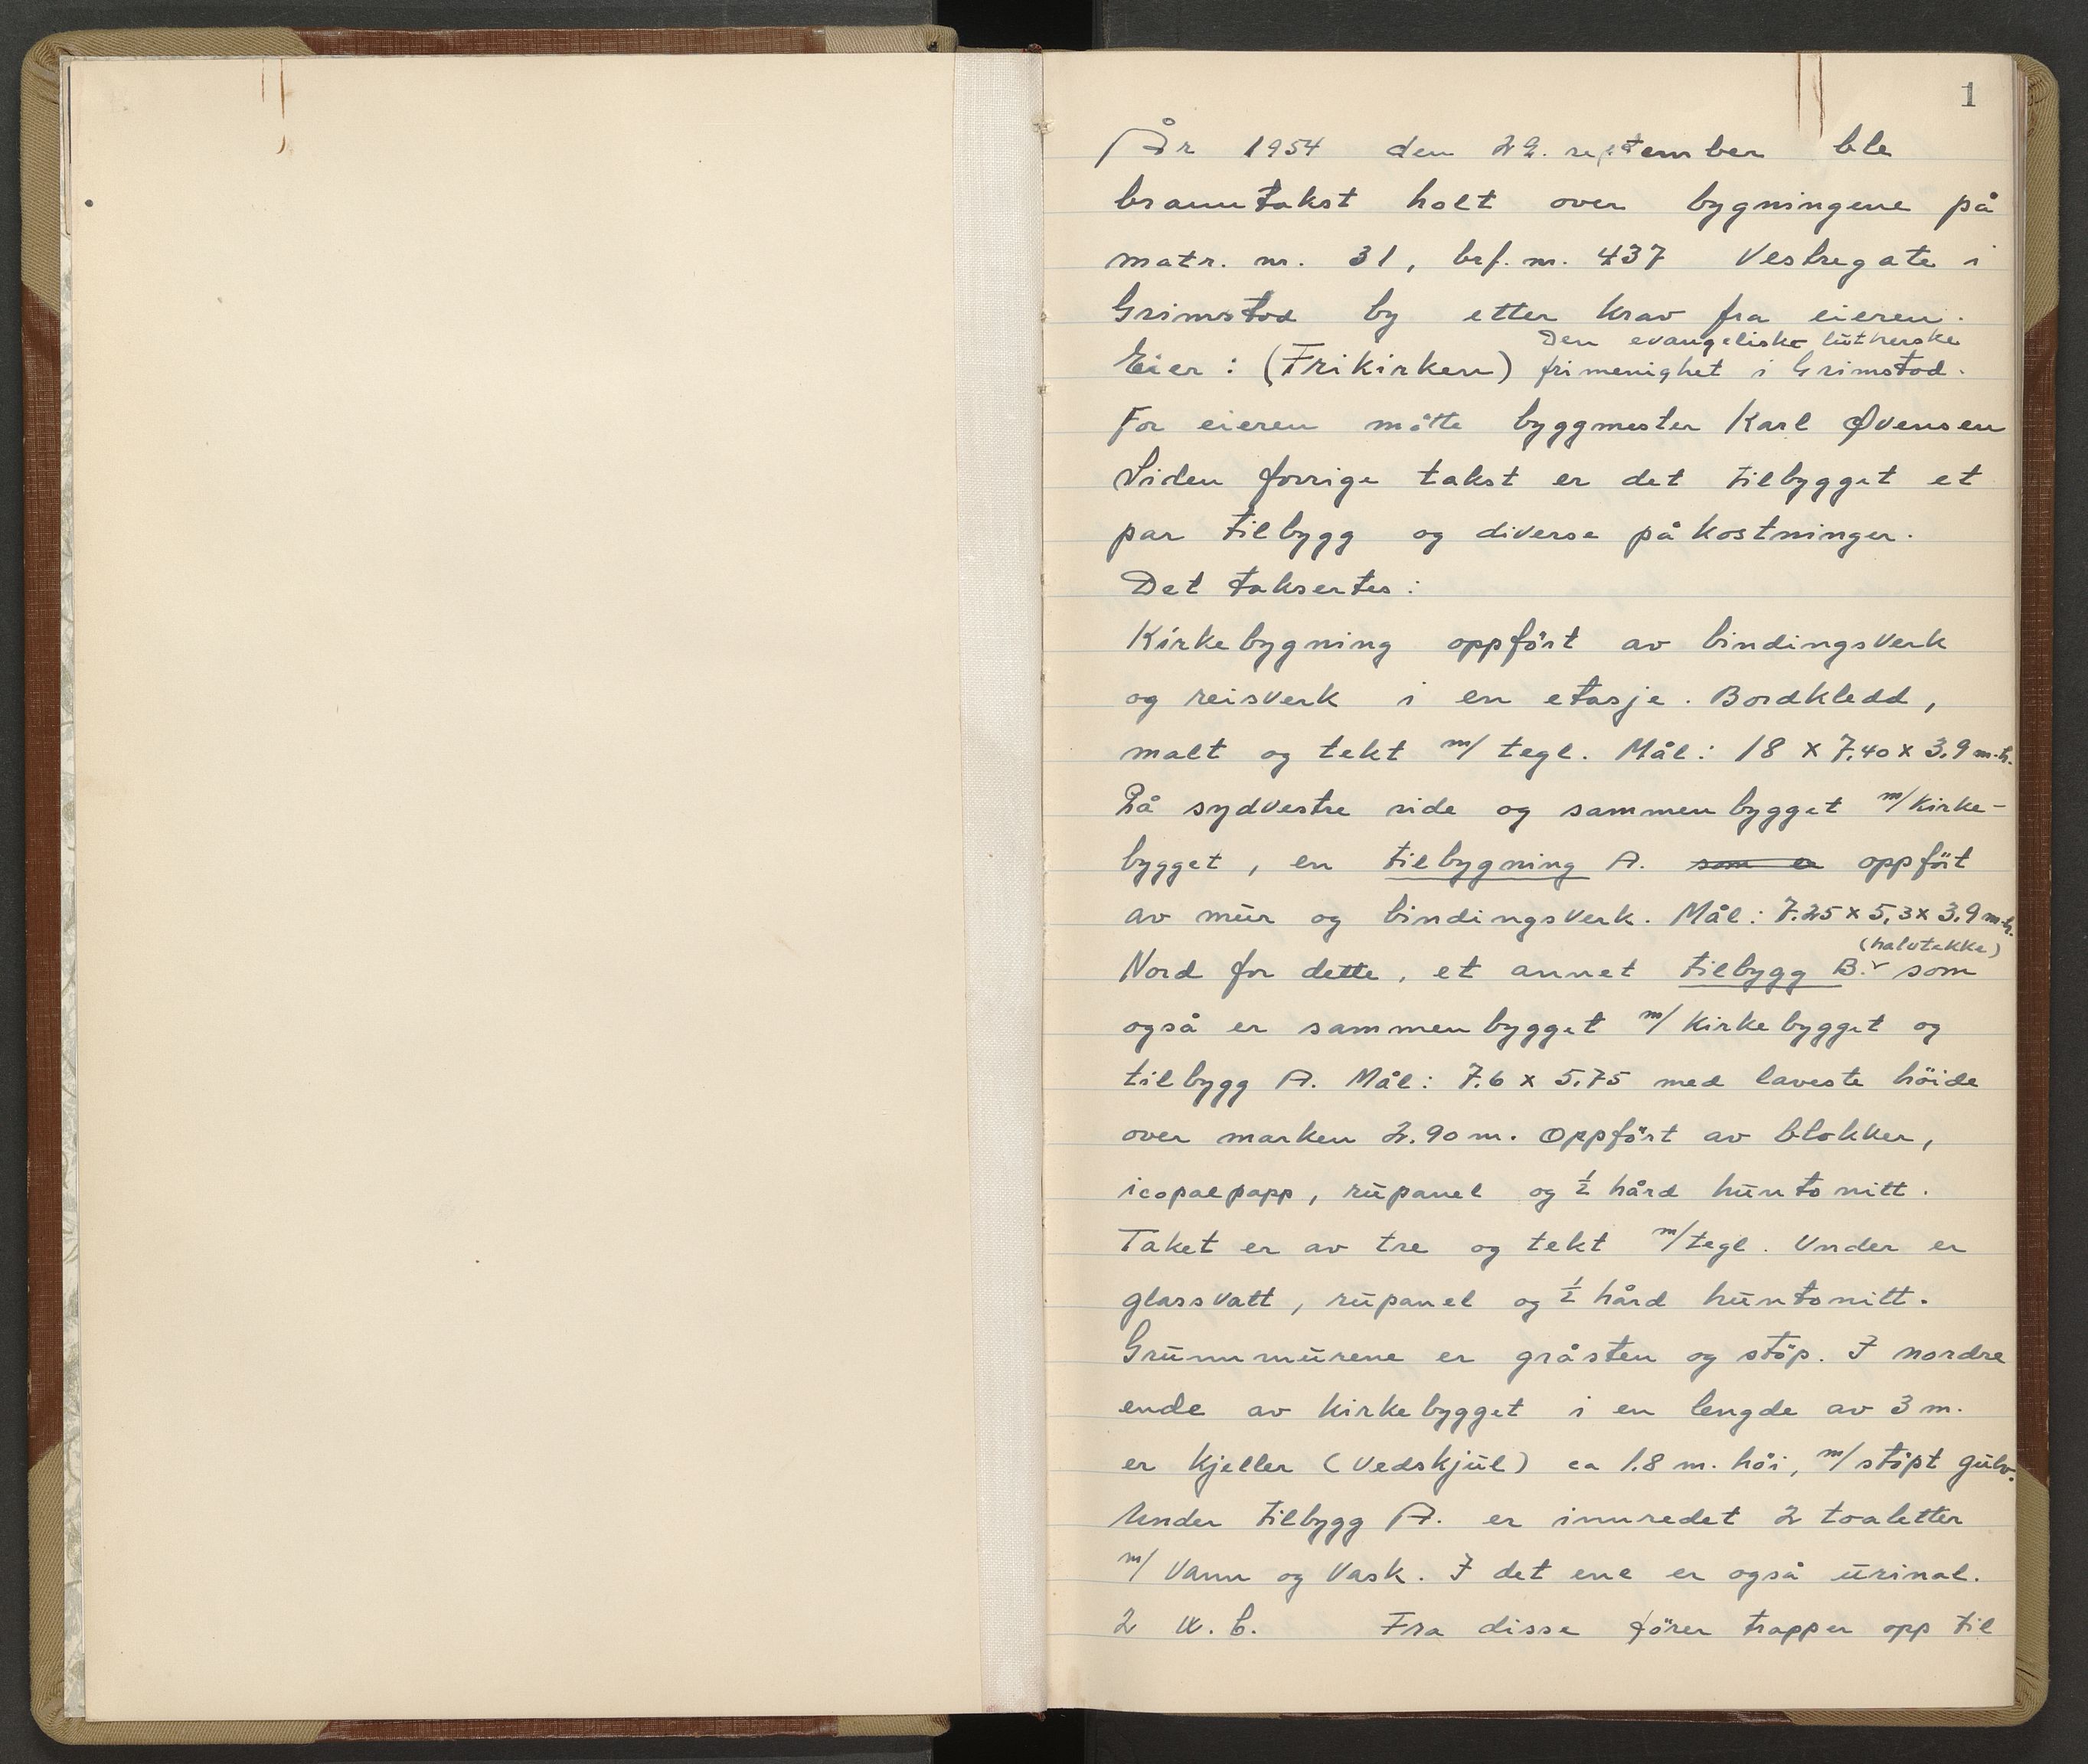 1
År 1954 den 29. september ble
branntakst holt over bygningene på
matr. nr. 31, brf. nr. 437 Vestregate i
Grimstad by etter krav fra eieren.
Den evangelisk lutherske
Eier : (Frikirken) frimenighet i Grimstad.
For eieren møtte byggmester Karl Øvensen
Siden forrige takst er det tilbygget et
par tilbygg og diverse påkostninger.
Det taksertes :
Kirkebygning oppført av bindingsverk
og reisverk i en etasje. Bordkledd,
malt og tekt m/ tegl. Mål : 18 x 7.40 x 3.9 m.h.
På sydvestre side og sammenbygget m/ kirke-
bygget, en tilbygning A. som er oppført
av mur og bindingsverk. Mål : 7.25 x 5,3 x 3.9 m.h.
(halvtekke)
Nord for dette, et annet tilbygg B. som
også er sammenbygget m/ kirkebygget og
tilbygg A. Mål : 7.6 x 5.75 med laveste höide
over marken 2.90 m. Oppfört av blokker,
icopalpapp, rupanel og ½ hård huntonitt.
Taket er av tre og tekt m/ tegl. Under er
glassvatt, rupanel og ½ hård huntonitt.
Grunnmurene er gråsten og stöp. I nordre
ende av kirkebygget i en lengde av 3 m.
er kjeller (vedskjul) ca 1.8 m. höi, m/ stöpt gulv.
Under tilbygg A. er innredet 2 toaletter
m/ vann og vask. I det ene er også urinal.
2 W.C. Fra disse förer trapper opp til